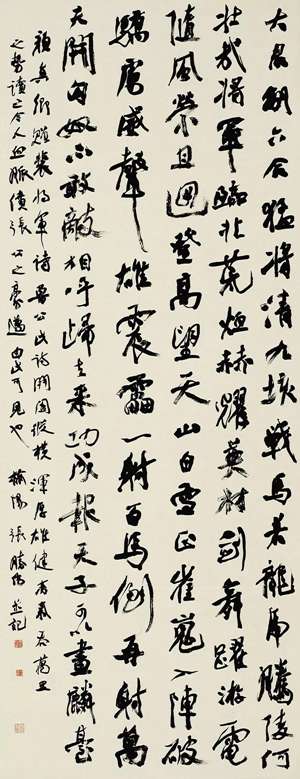 大君制六合猛將清九垓戰馬若龍虎騰陵何
壯哉將軍臨北荒烜赫耀英材劍舞躍游電
隨風縈且迴登高望天山白雪正崔嵬入陣破
驕虜威聲雄震雷一射百馬倒再射萬
夫開匈奴不敢敵相呼歸去來功成報天子可以畫麟臺
顏真卿贈裴將軍詩魯公此詩開闔縱橫渾厚雄健有萬丈
之勢讀之令人血脈僨張公之豪邁由此可見也 張勝偉並記